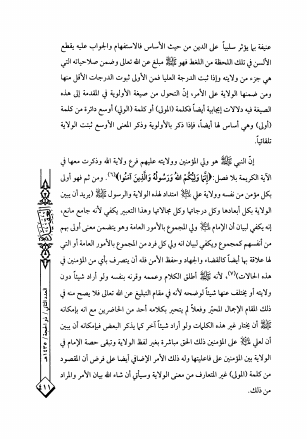 عنيفة بما يؤثر سلبياً على الدين من حيث الأساس فالاستفهام والجواب عليه يقطع
الألسن في تلك اللحظة من اللغط فهو ﷺ مبلغ عن الله تعالى وضمن صلاحياته التي
هي جزء من ولايته وإذا ثبت الدرجة العليا فمن الأولى ثبوت الدرجات الأقل منها
ومن ضمنها الولاية على الأمر، إنّ التحول من صيغة الأولوية في المقدمة إلى هذه
الصيغة فيه دلالات إيجابية أيضاً فكلمة (المولى) أو كلمة (الولي) أوسع دائرة من كلمة
(أولى) وهي أساس لها أيضاً، فإذا ذكر بالأولوية وذكر المعنى الأوسع ثبتت الولاية
تلقائياً.
إنّ النبي ﷺ هو ولي المؤمنين وولايته عليهم فرع ولاية الله وذكرت معها في
الآية الكريمة بلا فصل: {إِنَّمَا وَلِيُّكُمُ اللَّهُ وَرَسُولُهُ وَالَّذِينَ آمَنُوا}(٦). ومن ثم فهو أولى
بكل مؤمن من نفسه وولاية علي امتداد لهذه الولاية والرسول ﷺ (يريد أن يبين
الولاية بكل أبعادها وكل درجاتها وكل مجالاتها وهذا التعبير يكفي لأنه جامع مانع،
إنه يكفي لبيان أن الإمام ولي للمجموع بالأمور العامة وهو يتضمن معنى أولى بهم
من أنفسهم كمجموع ويكفي لبيان انه ولي كل فرد من المجموع بالأمور العامة أو التي
لها علاقة بها أيضاً كالقضاء والجهاد وحفظ الأمن فله أن يتصرف بأي من المؤمنين في
هذه الحالات)(٧)، لأنه ﷺ أطلق الكلام وعممه وقرنه بنفسه ولو أراد شيئاً دون
ولايته أو يختلف عنها شيئاً لوضحه لأنه في مقام التبليغ عن الله تعالى فلا يصح منه في
ذلك المقام الإجمال المحيّر وفعلاً لم يتحير بكلامه أحد من الحاضرين مع انه بإمكانه
ﷺ أن يختار غير هذه الكلمات ولو أراد شيئاً آخر كما يذكر البعض فبإمكانه أن يبين
أن لعلي على المؤمنين ذلك الحق مباشرة بغير لفظ الولاية وتبقى حصة الإمام في
الولاية بين المؤمنين على فاعليتها وله ذلك الأمر الإضافي أيضاً على فرض أن المقصود
من كلمة (المولى) غير المتعارف من معنى الولاية وسيأتي أن شاء الله بيان الأمر والمراد
من ذلك.
العقيدة
العدد الثاني / ذو الحجة / ١٤٣٥هـ
٤١١